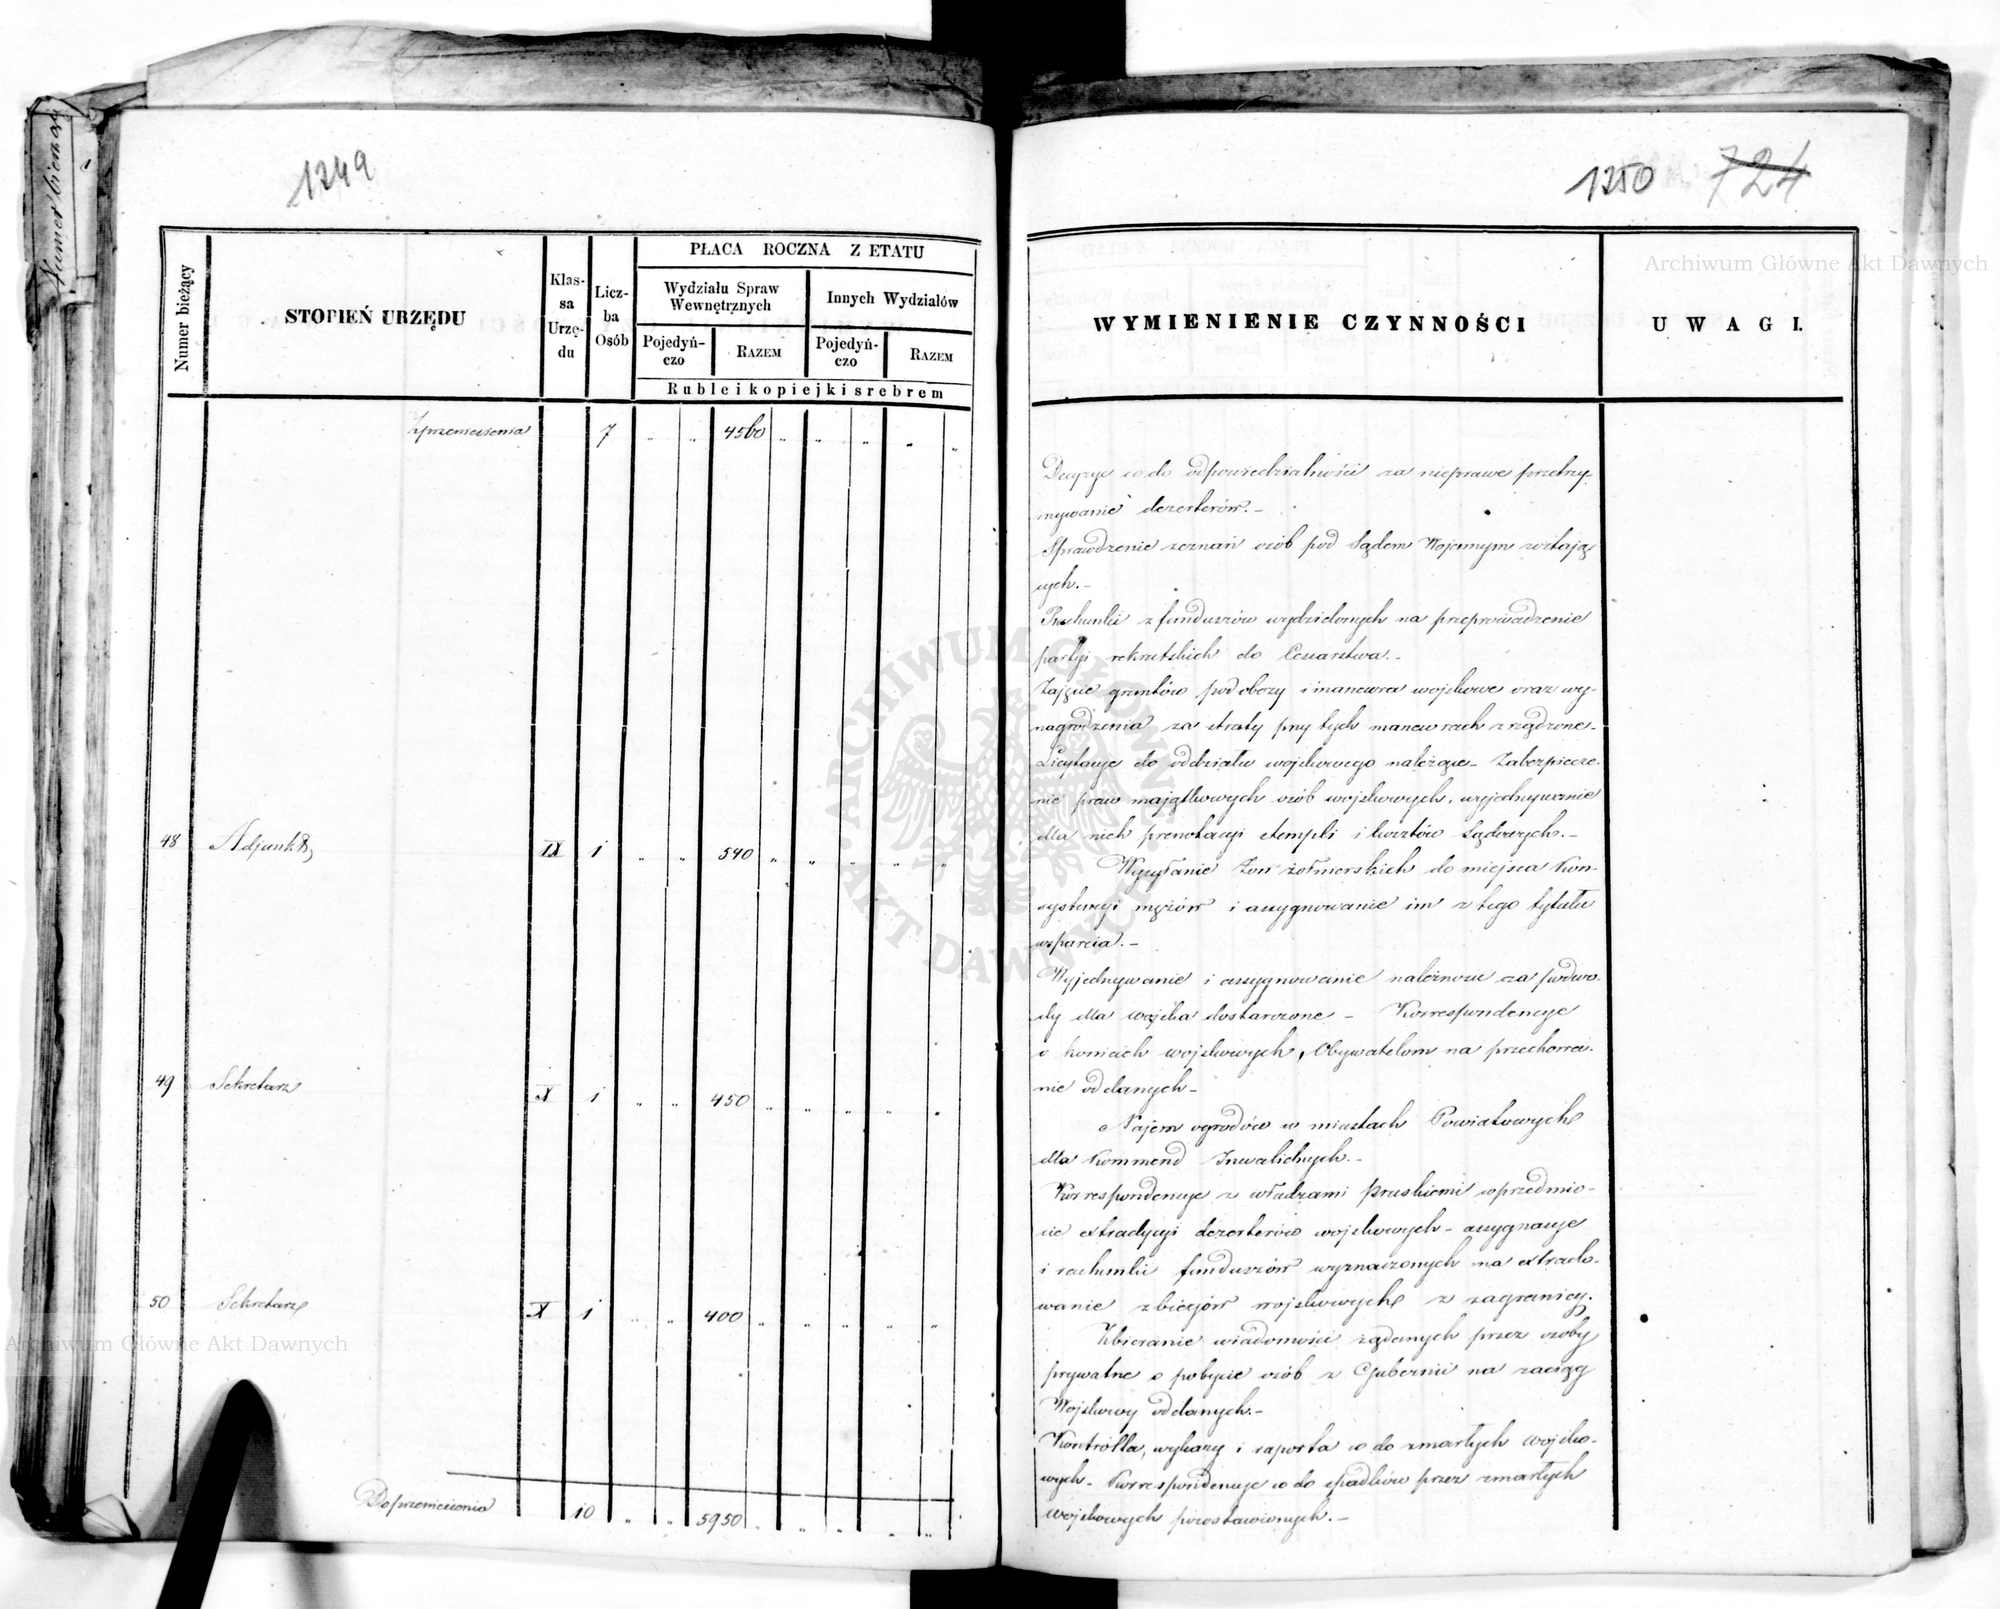 Numer bieżący
1249
Numer bieżący
STOPIEŃ URZĘDU
Klas-
sa
Urzę-
du
Licz-
ba
Osób
PŁACA ROCZNA Z ETATU
Wydziału Spraw
Wewnętrznych
Innych Wydziałów
Pojedyń-
czo
RAZEM
Pojedyń-
czo
RAZEM
Ruble i kopiejki srebrem
Zprzeniesienia 7 „ „ 4560 „ „ „ „ „
48 Adjunkt IX 1 „ „ 540 „ „ „ „ „
49 Sekretarz X 1 „ „ 450 „ „ „ „ „
50 Sekretarz X 1 „ „ 400 „ „ „ „ „
Do przeniesienia 10 „ „ 5950 „ „ „ „ „
1250 724
WYMIENIENIE CZYNNOŚCI
UWAGI.
Decyzye co do odpowiedzialności za nieprawe przetrzy-
mywanie dezerterów.-
Sprawdzenie zeznań osób pod Sądem Wojennym zostają
cych.-
Rachunki z funduszów wydzielonych na przeprowadzenie
partyi rekrutskich do Cesarstwa.-
Zajęcie gruntów pod obozy i manewra wojskowe oraz wy-
nagrodzenia za straty przy tych manewrach zrządzone-
Licytacye do oddziału wojskowego należące- Zabezpiecze-
nie praw majątkowych osób wojskowych, wyjednywanie
dla nich prenotacyi stempli i kosztów Sądowych.-
Wysyłanie żon żołnierskich do miejsca Kon-
systencyi mężów i assygnowanie im z tego tytułu
wsparcia.-
Wyjednywanie i assygnowanie należności za podwo-
dy dla wojska dostarczone - Korrespondencye
o koniach wojskowych, Obywatelom na przechowa-
nie oddanych-
Najem ogrodów w miastach Powiatowych
dla Kommend Inwalidnych.-
Korrespondencye z władzami Pruskiemi w przedmio-
cie extradycyi dezerterów wojskowych- assygnacye
i rachunki funduszów wyznaczonych na extrado-
wanie zbiegów wojskowych z zagranicy.
Zbieranie wiadomości żądanych przez osoby
prywatne o pobycie osób z Gubernii na zaciąg
Wojskowy oddanych.-
Kontrolla, wykazy i raporta co do zmarłych wojsko-
wych- Korrespondencye co do spadków przez zmarłych
wojskowych pozostawionych.-
Archiwum Główne Akt Dawnych
Archiwum Główne Akt Dawnych
ARCHIWUM GŁÓWNE
AKT DAWNYCH